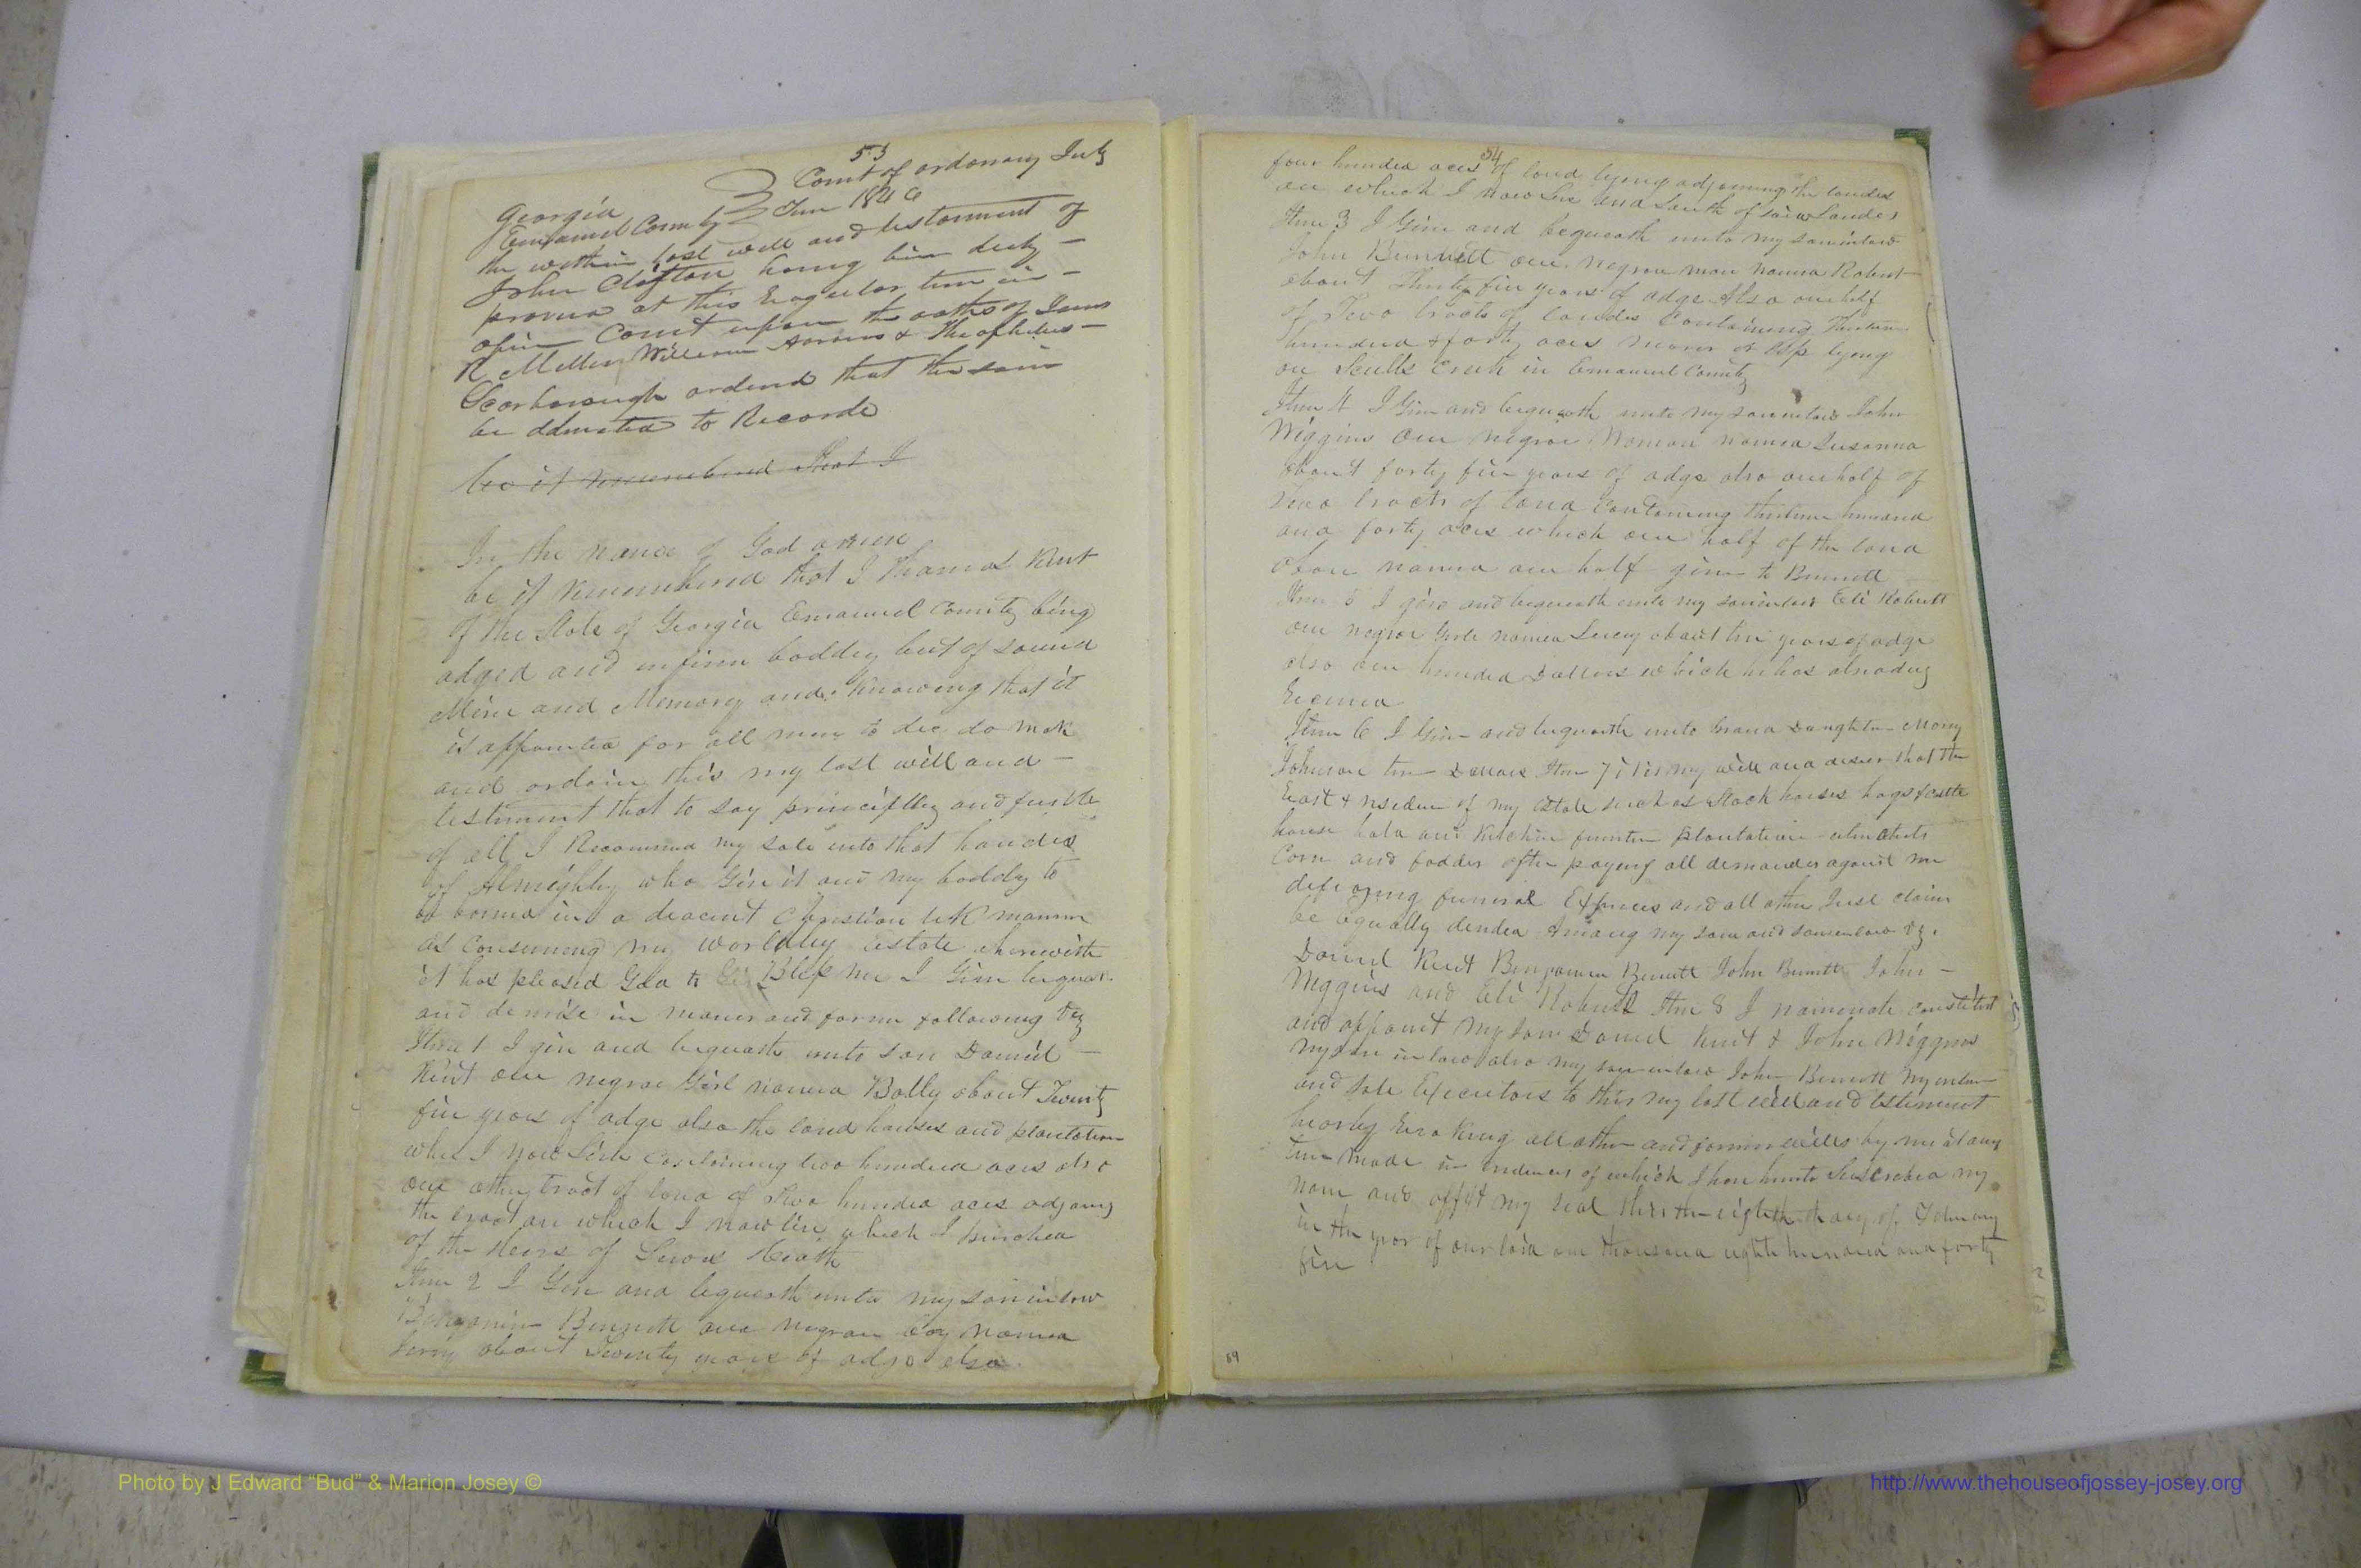 53
Court of ordonary July
Georgia
Emanuel County } Turm 1846
the within last will and testament of
John Clifton having bin duly
proven at this Regular turm in
opin Court upon the oaths of
R Miller William & Theophilus
Scarborough ordend that the same
be admited to Recorde
be it remembered that I
In the name of God amen
be it remembered that I Thomas Kent
of the State of Georgia Emanuel County being
adged and infirm boddy but of sound
Mine and Memory and Knowing that it
is appointed for all men to die do mak
and ordain this my last will and
testiment that to say principlly and furste
of all I Recommend my sole into that handes
of Almighty who Give it and my boddy to
be borned in a deacent Christian like manner
as Consurning my worldly Estate wherewith
it has pleased God to Bless me I Give bequeath
and demise in maner and forme following viz
Item 1 I give and bequeath unto son Daniel
Kent one negroe Girl named Bolly about Twenty
five years of adge also the land houses and plantation
whar I now Live Containing two hundred aces also
one other tract of land of Two hundred aces adjoing
the tract on which I now live which I purched
of the Heirs of Heath
Item 2 I Give and bequeath unto my son in low
Benjamin Bennett one negroe boy named
Jerry about Twenty years of adge also
54
four hundred aces of land lying adjoining the landes
on which I now Live and South of said Landes
Item 3 I Give and bequeath unto my son in law
John Bennett one negroe man named Robert
about Thirty five years of adge Also one half
of Two tracts of landes Containing Thirteen
hundred & forty aces more or less lying
on Sculls Creek in Emanuel County
Item 4 I Give and bequeath unto my son in law John
Wiggins One negroe Woman named Susanna
about forty five years of adge also one half of
Two tracts of land Containing thirteen hundred
and forty aces which one half of the land
above named one half give to Bennett
Item 5 I give and bequeath unto my son in law Eli Robertt
one negroe Girle named about ten years of adge
also one hundred Dollars which he has already
Receved
Item 6 I Give and bequeath unto Grand Daughter Mary
Johnson ten Dollars Item 7 it is my will and desier that the
Reast & residue of my estate such as Stock horses hogs & cattle
house hold and Kitchin furniture plantation
Corn and fodder after paying all demandes against me
defraying funeral Expences and all other Just claims
be Equally devided Among my sone and son in law viz.
Daniel Kent Benjamin Bennett John Bennett John
Wiggins and Eli Robertt Item 8 I nominate constitut
and appoint my son Daniel Kent & John Wiggins
my son in law also my son in law John Bennett my
and sole Executors to this my last will and testiment
hearby Revoking all other and former wills by me at any
time made in of which I have hunto Suscrebed my
name and affixt my seal this the eighteth day of February
in the year of our lord one thousand eighte hundred and forty
five
59
Photo by J Edward “Bud” & Marion Josey ©
http://www.thehouseofjossey-josey.org